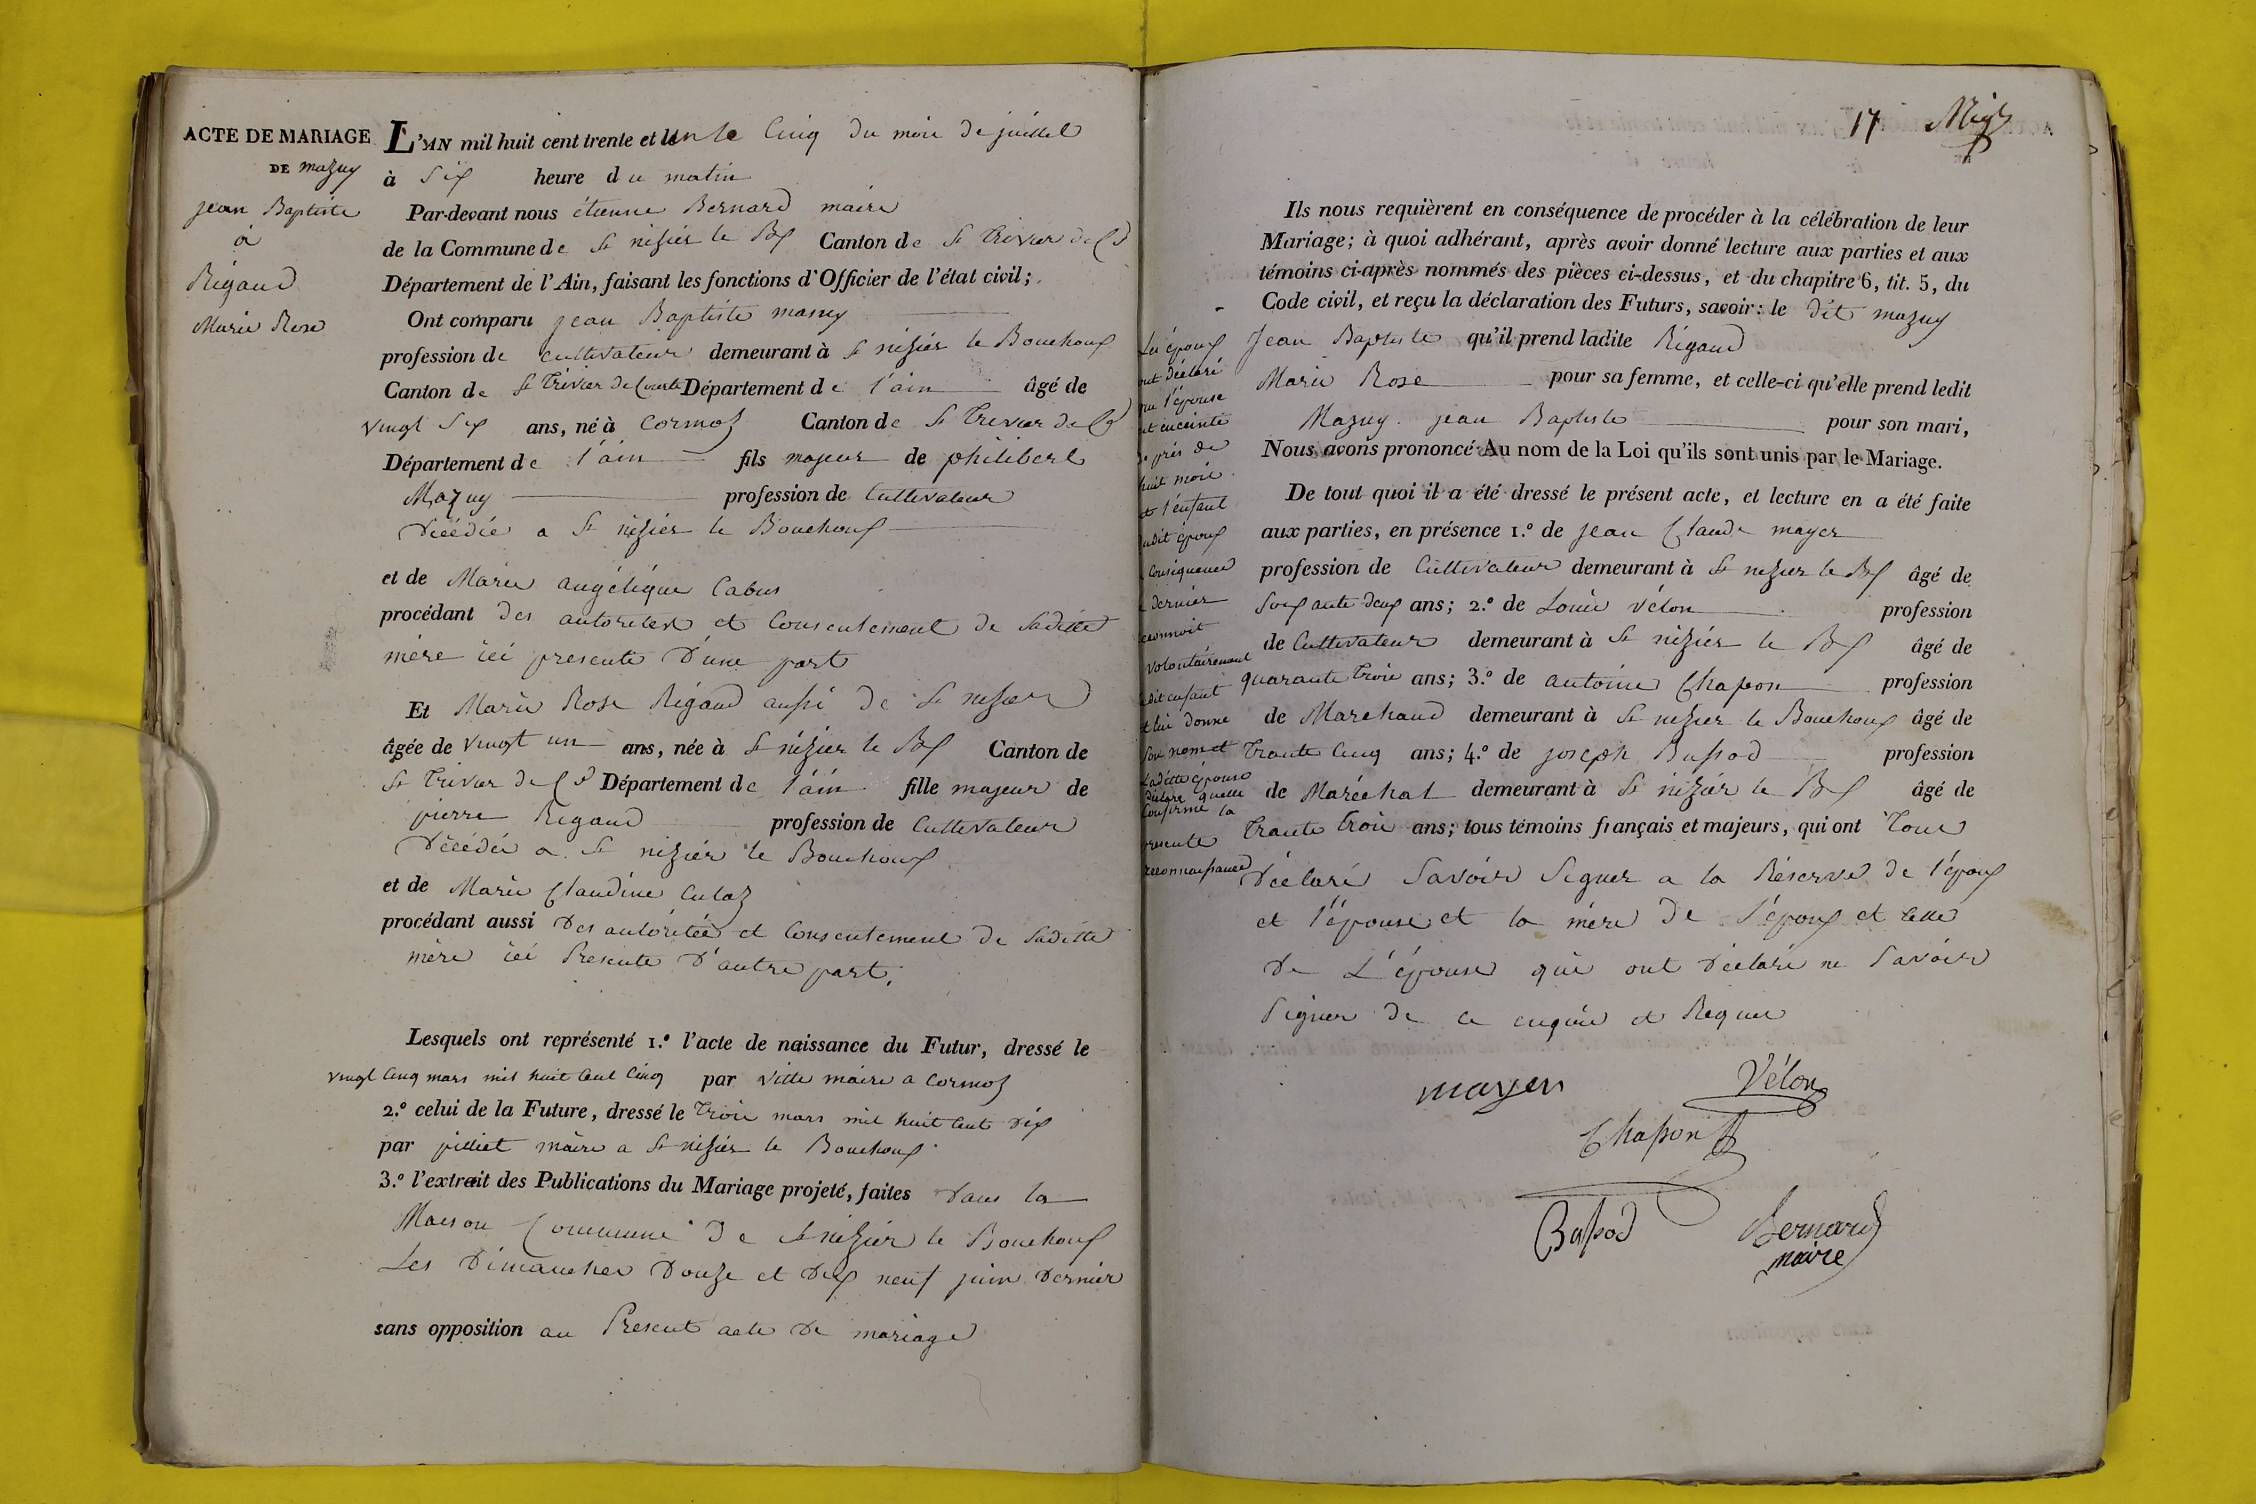 ACTE DE MARIAGE
DE mazuy
jean Baptiste
à
Rigaud
Marie Rose
L'AN mil huit cent trente et un le Cinq du mois de juillet
à Six heure du matin
Par-devant nous étienne Bernard maire
de la Commune de St nizier le Bx Canton de St Trivier de Cd
Département de l'Ain, faisant les fonctions d'Officier de l'état civil;
Ont comparu jean Baptiste mazuy
profession de cultivateur demeurant à St nizier le Bouchoux
Canton de St Trivier de Courte Département de l'ain âgé de
vingt Six ans, né à Cormoz Canton de St Trevier de Cd
Département de l'ain fils majeur de philibert
Mazuy profession de Cultivateur
Décédié a St nizier le Bouchoux
et de Marie angélique Cabus
procédant des autorites et Consentement de Saditte
mère ici presente D'une part
Et Marie Rose Rigaud aussi de St nizier
âgée de vingt un ans, née à St nizier le Bx Canton de
St Trivier de Cd Département de l'ain fille majeur de
pierre Rigaud profession de Cultivateur
Décédée a St nizier le Bouchoux
et de Marie Claudine Culaz
procédant aussi Des autoritée et Consentement de Saditte
mère ici Presente D'autre part.
Lesquels ont représenté 1.º l'acte de naissance du Futur, dressé le
vingt Cinq mars mil huit Cent Cinq par vitte maire a Cormoz
2.º celui de la Future, dressé le Trois mars mil huit Cent Dix
par pilliet maire a St nizier le Bouchoux
3.º l'extrait des Publications du Mariage projeté, faites Dans la
Maison Commune De St nizier le Bouchoux
Les Dimanches Douze et Dix neuf juin Dernier
sans opposition au Present acte De mariage
17
Ils nous requièrent en conséquence de procéder à la célébration de leur
Mariage; à quoi adhérant, après avoir donné lecture aux parties et aux
témoins ci-après nommés des pièces ci-dessus, et du chapitre 6, tit. 5, du
Code civil, et reçu la déclaration des Futurs, savoir: le Dit mazuy
Jean Baptiste qu'il prend ladite Rigaud
Marie Rose pour sa femme, et celle-ci qu'elle prend ledit
Mazuy jean Baptiste pour son mari,
Nous avons prononcé Au nom de la Loi qu'ils sont unis par le Mariage.
De tout quoi il a été dressé le présent acte, et lecture en a été faite
aux parties, en présence 1.º de jean Claude mayer
profession de Cultivateur demeurant à St nizier le Bx âgé de
Soixante deux ans; 2.º de Louis vélon profession
de Cultivateur demeurant à St nizier le Bx âgé de
quarante Trois ans; 3.º de antoine Chapon profession
de Marchand demeurant à St nizier le Bouchoux âgé de
Trante Cinq ans; 4.º de joseph Bussod profession
de Maréchal demeurant à St nizier le Bx âgé de
Trante trois ans; tous témoins français et majeurs, qui ont Tous
Déclaré Savoir Signer a la Réserve de l'époux
et l'épouse et la mère De l'époux et Celle
De L'épouse qui ont Déclaré ne Savoir
Signer De ce enquis et Requis
Les époux
ont déclaré
que l'épouse
est enceinte
De près de
huit mois
et l'enfant
dudit époux
Consequence
dernier
reconnoit
volontairement
ledit enfant
et lui donne
Son nom et
Ladite épouse
Déclare quelle
Confirme la
presente
reconnaissance
mayer
Vélon
Chapon
Bussod
Bernard
maire